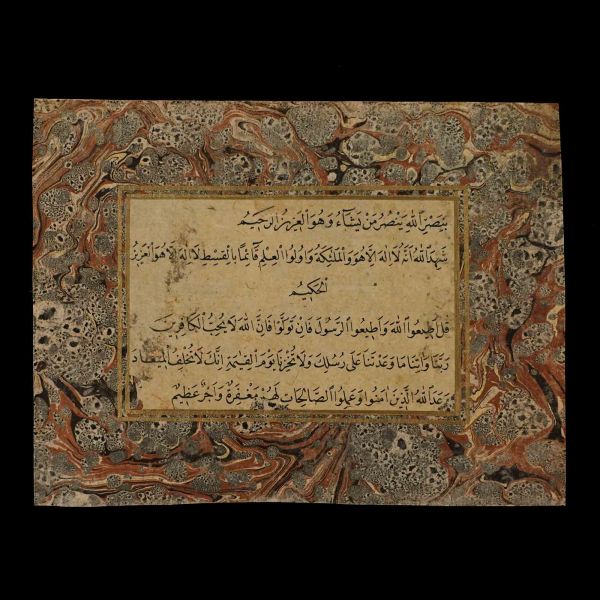 بِنَصْرِ اللهِ يَنْصُرُ مَنْ يَشَاءُ وَهُوَ الْعَزِيزُ الرَّحِيمُ
شَهِدَ اللهُ اَنَّهُ لَا اِلٰهَ اِلَّا هُوَ وَالْمَلٰئِكَةُ وَاُولُوا الْعِلْمِ قَائِمًا بِالْقِسْطِ لَا اِلٰهَ اِلَّا هُوَ الْعَزِيزُ
الْحَكِيمُ
قُلْ اَطِيعُوا اللهَ وَاَطِيعُوا الرَّسُولَ فَاِنْ تَوَلَّوْا فَاِنَّ اللهَ لَا يُحِبُّ الْكَافِرِينَ
رَبَّنَا وَاٰتِنَا مَا وَعَدْتَنَا عَلٰى رُسُلِكَ وَلَا تُخْزِنَا يَوْمَ الْقِيٰمَةِ اِنَّكَ لَا تُخْلِفُ الْمِيعَادَ
وَعَدَ اللهُ الَّذِينَ اٰمَنُوا وَعَمِلُوا الصَّالِحَاتِ لَهُمْ مَغْفِرَةٌ وَاَجْرٌ عَظِيمٌ